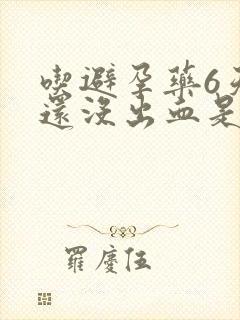 喫避孕藥6天
還沒出血是
羅慶伍